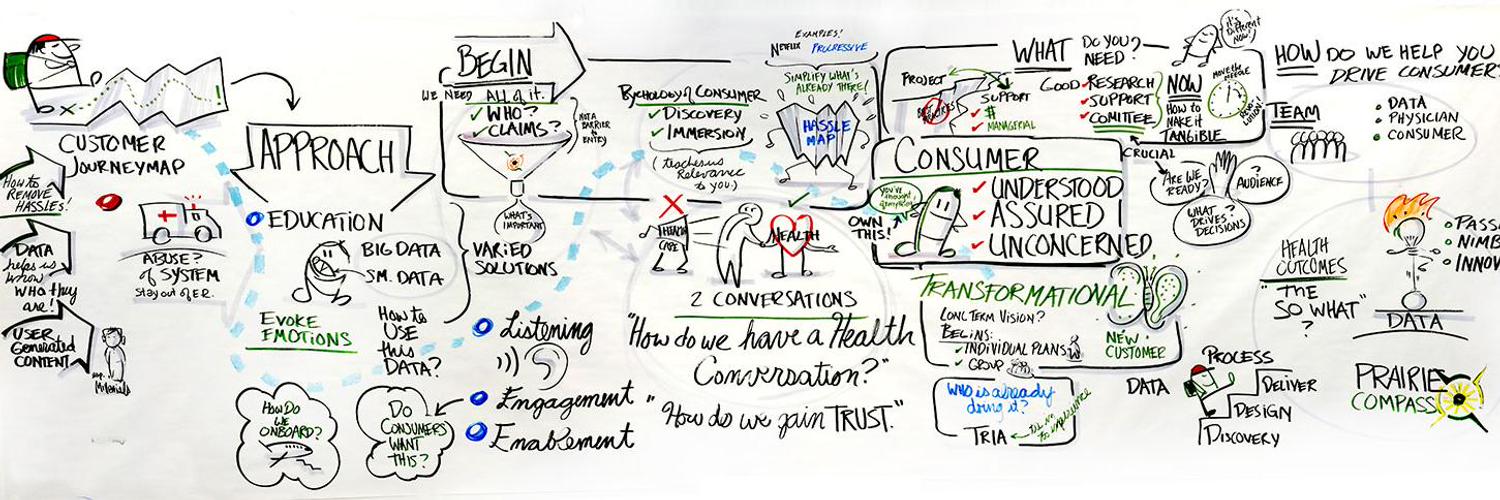 CUSTOMER
JOURNEYMAP
How to
REMOVE
HASSLES!
DATA
helps us
know
WHO they
are!
USER
Generated
CONTENT
ABUSE?
of SYSTEM
Stay out of E.R.
APPROACH
EDUCATION
BIG DATA
SM. DATA
EVOKE
EMOTIONS
How to
USE
this
DATA?
HOW DO
WE
ONBOARD?
DO
CONSUMERS
WANT
THIS?
BEGIN
WE NEED ALL of it.
WHO?
CLAIMS?
NOT A
BARRIER
to
ENTRY
WHAT'S
IMPORTANT
VARIED
SOLUTIONS
Listening
Engagement
Enablement
PSYCHOLOGY of CONSUMER
DISCOVERY
IMMERSION
(teaches us
Relevance
to you.)
EXAMPLES!
NETFLIX PROGRESSIVE
SIMPLIFY WHAT'S
ALREADY THERE!
HASSLE
MAP
HEALTH
CARE
HEALTH
2 CONVERSATIONS
"How do we have a Health
Conversation?"
"How do we gain TRUST."
WHAT DO YOU?
NEED?
it's
Different
Now!
PROJECT
SUPPORT
$
MANAGERIAL
GOOD RESEARCH
SUPPORT
COMITTEE
NOW
HOW to
MAKE it
TANGIBLE
MOVE the
NEEDLE
CRUCIAL
ARE WE
READY?
AUDIENCE
WHAT
DRIVES
DECISIONS
CONSUMER
UNDERSTOOD
ASSURED
UNCONCERNED
You've
thought of
everything
OWN
THIS!
TRANSFORMATIONAL
LONG TERM VISION?
BEGINS:
INDIVIDUAL PLANS
GROUP
NEW
CUSTOMER
WHO is already
doing it?
TRIA
HOW DO WE HELP YOU
DRIVE CONSUMER
TEAM
DATA
PHYSICIAN
CONSUMER
HEALTH
OUTCOMES
"THE
SO WHAT"
?
DATA
PROCESS
DELIVER
DESIGN
DISCOVERY
DATA
PRAIRIE
COMPASS